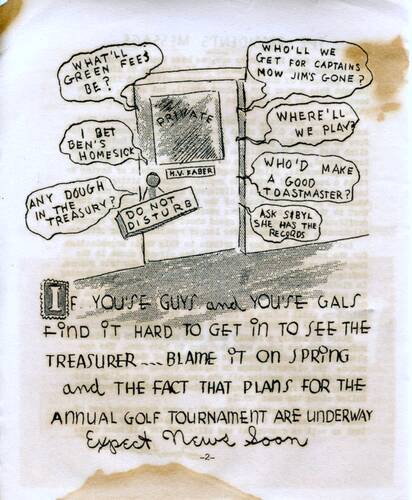 WHAT'LL
GREEN FEES
BE?
WHO'LL WE
GET FOR CAPTAINS
NOW JIM'S GONE?
PRIVATE
I BET
BEN'S
HOMESICK
WHERE'LL
WE PLAY?
H.V. FABER
WHO'D MAKE
A GOOD
TOASTMASTER?
ANY DOUGH
IN THE
TREASURY?
DO NOT
DISTURB
ASK SIBYL
SHE HAS THE
RECORDS
IF YOU'SE GUYS and YOU'SE GALS
FIND IT HARD TO GET IN TO SEE THE
TREASURER ... BLAME IT ON SPRING
and THE FACT THAT PLANS FOR THE
ANNUAL GOLF TOURNAMENT ARE UNDERWAY
Expect News Soon
-2-